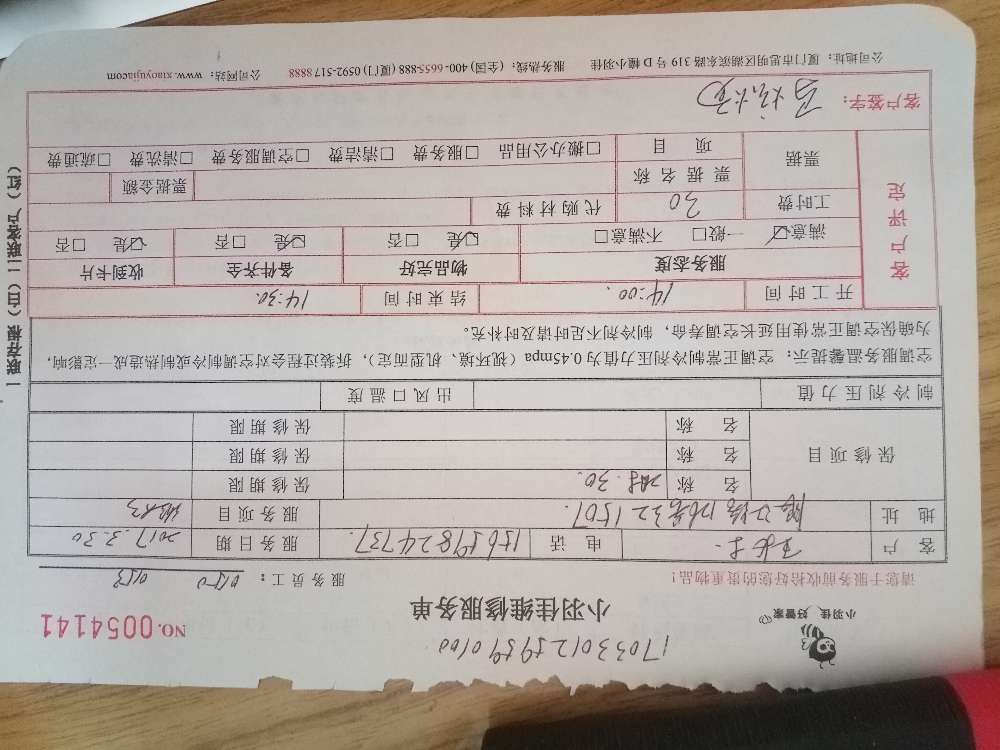 1703301259590100
小羽佳 好管家
小羽佳维修服务单
NO.0054141
请您于服务前收拾好您的贵重物品!
服务员工: 0150 0153
客户 电话 15659824737. 服务日期 2017.3.30
地址 321507. 服务项目
保修项目
名称 30. 保修期限
名称 保修期限
名称 保修期限
制冷剂压力值 出风口温度
空调服务温馨提示:空调正常制冷剂压力值为0.45mpa(视环境、机型而定),拆装过程会对空调制冷或制热造成一定影响,
为确保空调正常使用延长空调寿命,制冷剂不足时请及时补充。
客户评定
开工时间 14:00. 结束时间 14:30.
服务态度 物品完好 备件齐全 收到卡片
满意☑ 一般☐ 不满意☐ ☑是 ☐否 ☑是 ☐否 ☑是 ☐否
工时费 30 代购材料费
票据 票据名称 票据金额
项目 ☐搬办公用品 ☐服务费 ☐清洁费 ☐空调服务费 ☐清洗费 ☐疏通费
客户签字:
公司地址:厦门市思明区湖滨东路319号D幢小羽佳 服务热线:(全国)400-6655-888(厦门)0592-517 8888 公司网站:www.xiaoyujiacom
一联存根(白)二联客户(红)